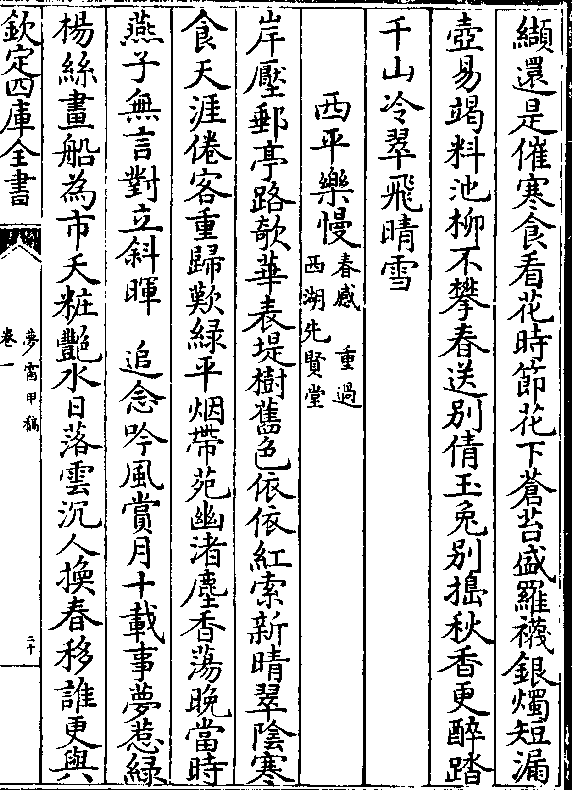 纈還是催寒食看花時節花下蒼苔盛羅襪銀燭短漏
壺易竭料池柳不攀春送别倩玉兔别搗秋香更醉踏
千山冷翠飛晴雪
西平樂慢春感　重過西湖先賢堂
岸壓郵亭路欹華表堤樹舊色依依紅索新晴翠陰寒
食天涯倦客重歸歎緑平烟帶苑幽渚塵香蕩晚當時
燕子無言對立斜暉　追念吟風賞月十載事夢惹緑
楊絲畫船為市夭粧艷水日落雲沉人換春移誰更與
欽定四庫全書
夢窗甲稿
卷一
二十